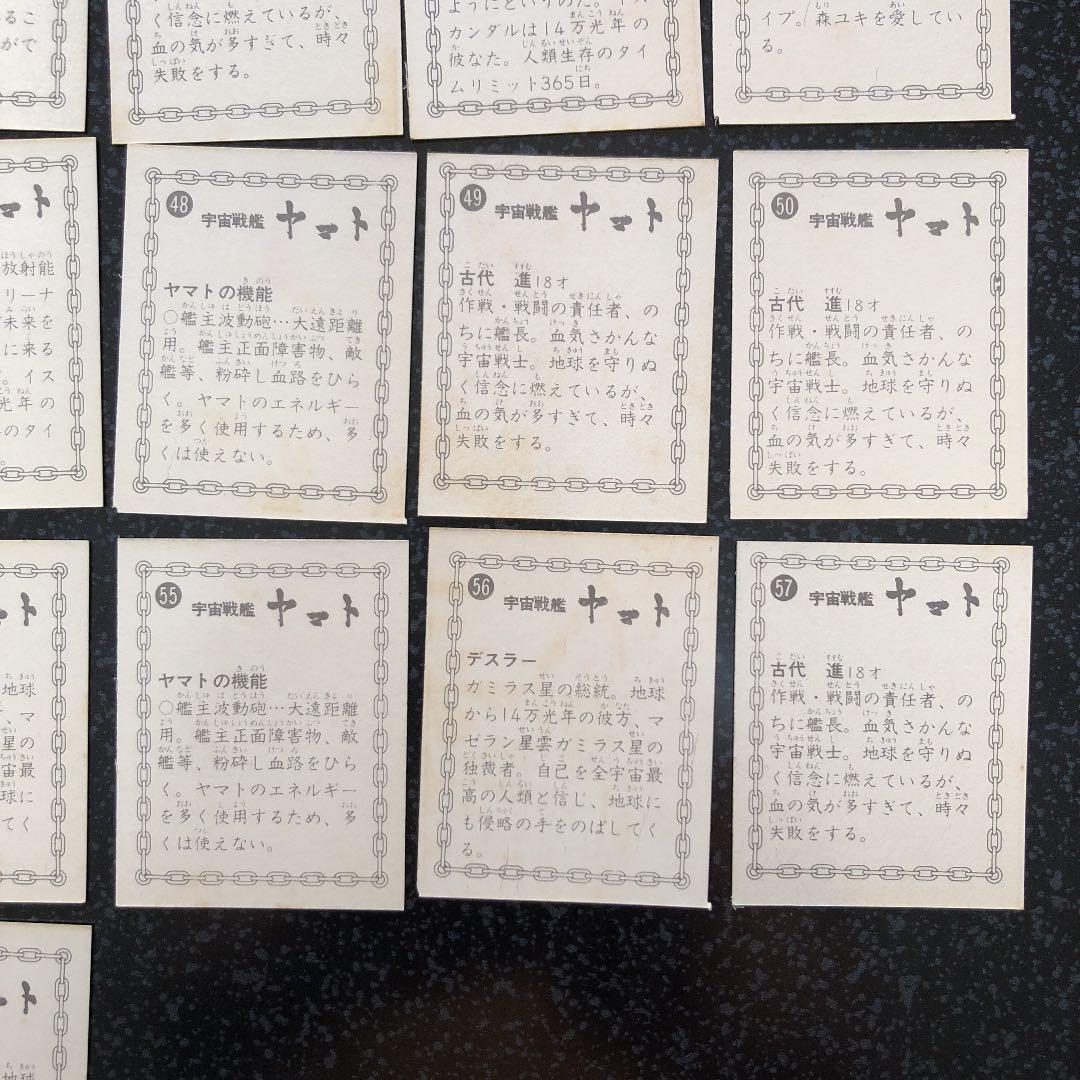 るこ
がで
く信念に燃えているが、
血の気が多すぎて、時々
失敗をする。
ようにというのだ。
カンダルは14万光年の
彼なた。人類生存のタイ
ムリミット365日。
イプ。森ユキを愛してい
る。
マト
放射能
リーナ
未来を
に来る
。イス
光年の
のタイ
。
48 宇宙戦艦 ヤマト
ヤマトの機能
○艦主波動砲…大遠距離
用。艦主正面障害物、敵
艦等、粉砕し血路をひら
く。ヤマトのエネルギー
を多く使用するため、多
くは使えない。
49 宇宙戦艦 ヤマト
古代 進18才
作戦・戦闘の責任者、の
ちに艦長。血気さかんな
宇宙戦士。地球を守りぬ
く信念に燃えているが、
血の気が多すぎて、時々
失敗をする。
50 宇宙戦艦 ヤマト
古代 進18才
作戦・戦闘の責任者、の
ちに艦長。血気さかんな
宇宙戦士。地球を守りぬ
く信念に燃えているが、
血の気が多すぎて、時々
失敗をする。
マト
地球
、マ
星の
宙最
球に
てく
55 宇宙戦艦 ヤマト
ヤマトの機能
○艦主波動砲…大遠距離
用。艦主正面障害物、敵
艦等、粉砕し血路をひら
く。ヤマトのエネルギー
を多く使用するため、多
くは使えない。
56 宇宙戦艦 ヤマト
デスラー
ガミラス星の総統。地球
から14万光年の彼方、マ
ゼラン星雲ガミラス星の
独裁者。自己を全宇宙最
高の人類と信じ、地球に
も侵略の手をのばしてく
る。
57 宇宙戦艦 ヤマト
古代 進18才
作戦・戦闘の責任者、の
ちに艦長。血気さかんな
宇宙戦士。地球を守りぬ
く信念に燃えているが、
血の気が多すぎて、時々
失敗をする。
マト
地球